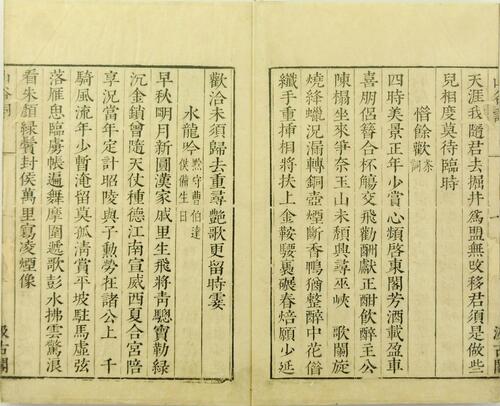 天涯我隨君去掘井爲盟無改移君須是做些
兒相度莫待臨時
惜餘歡 茶詞
四時美景正年少賞心頻啓東閣芳酒載盈車
喜朋侶簪合杯觴交飛勸酬獻正酣飲醉主公
陳榻坐來爭奈玉山未頹興尋巫峽 歌闌旋
燒絳蠟況漏轉銅壺煙斷香鴨猶整醉中花借
纖手重插相將扶上金鞍騕褭碾春焙願少延
歡洽未須歸去重尋艷歌更留時霎
水龍吟 黔守曹伯達供備生日
早秋明月新圓漢家戚里生飛將青驄寶勒綠
沉金鎖曾隨天仗種德江南宣威西夏合宮陪
享況當年定計昭陵與子勲勞在諸公上 千
騎風流年少暫淹留莫孤清賞平坡駐馬虛弦
落雁思臨虜帳遍舞摩圍遞歌彭水拂雲驚浪
看朱顏綠鬢封侯萬里寫凌煙像
汲古閣